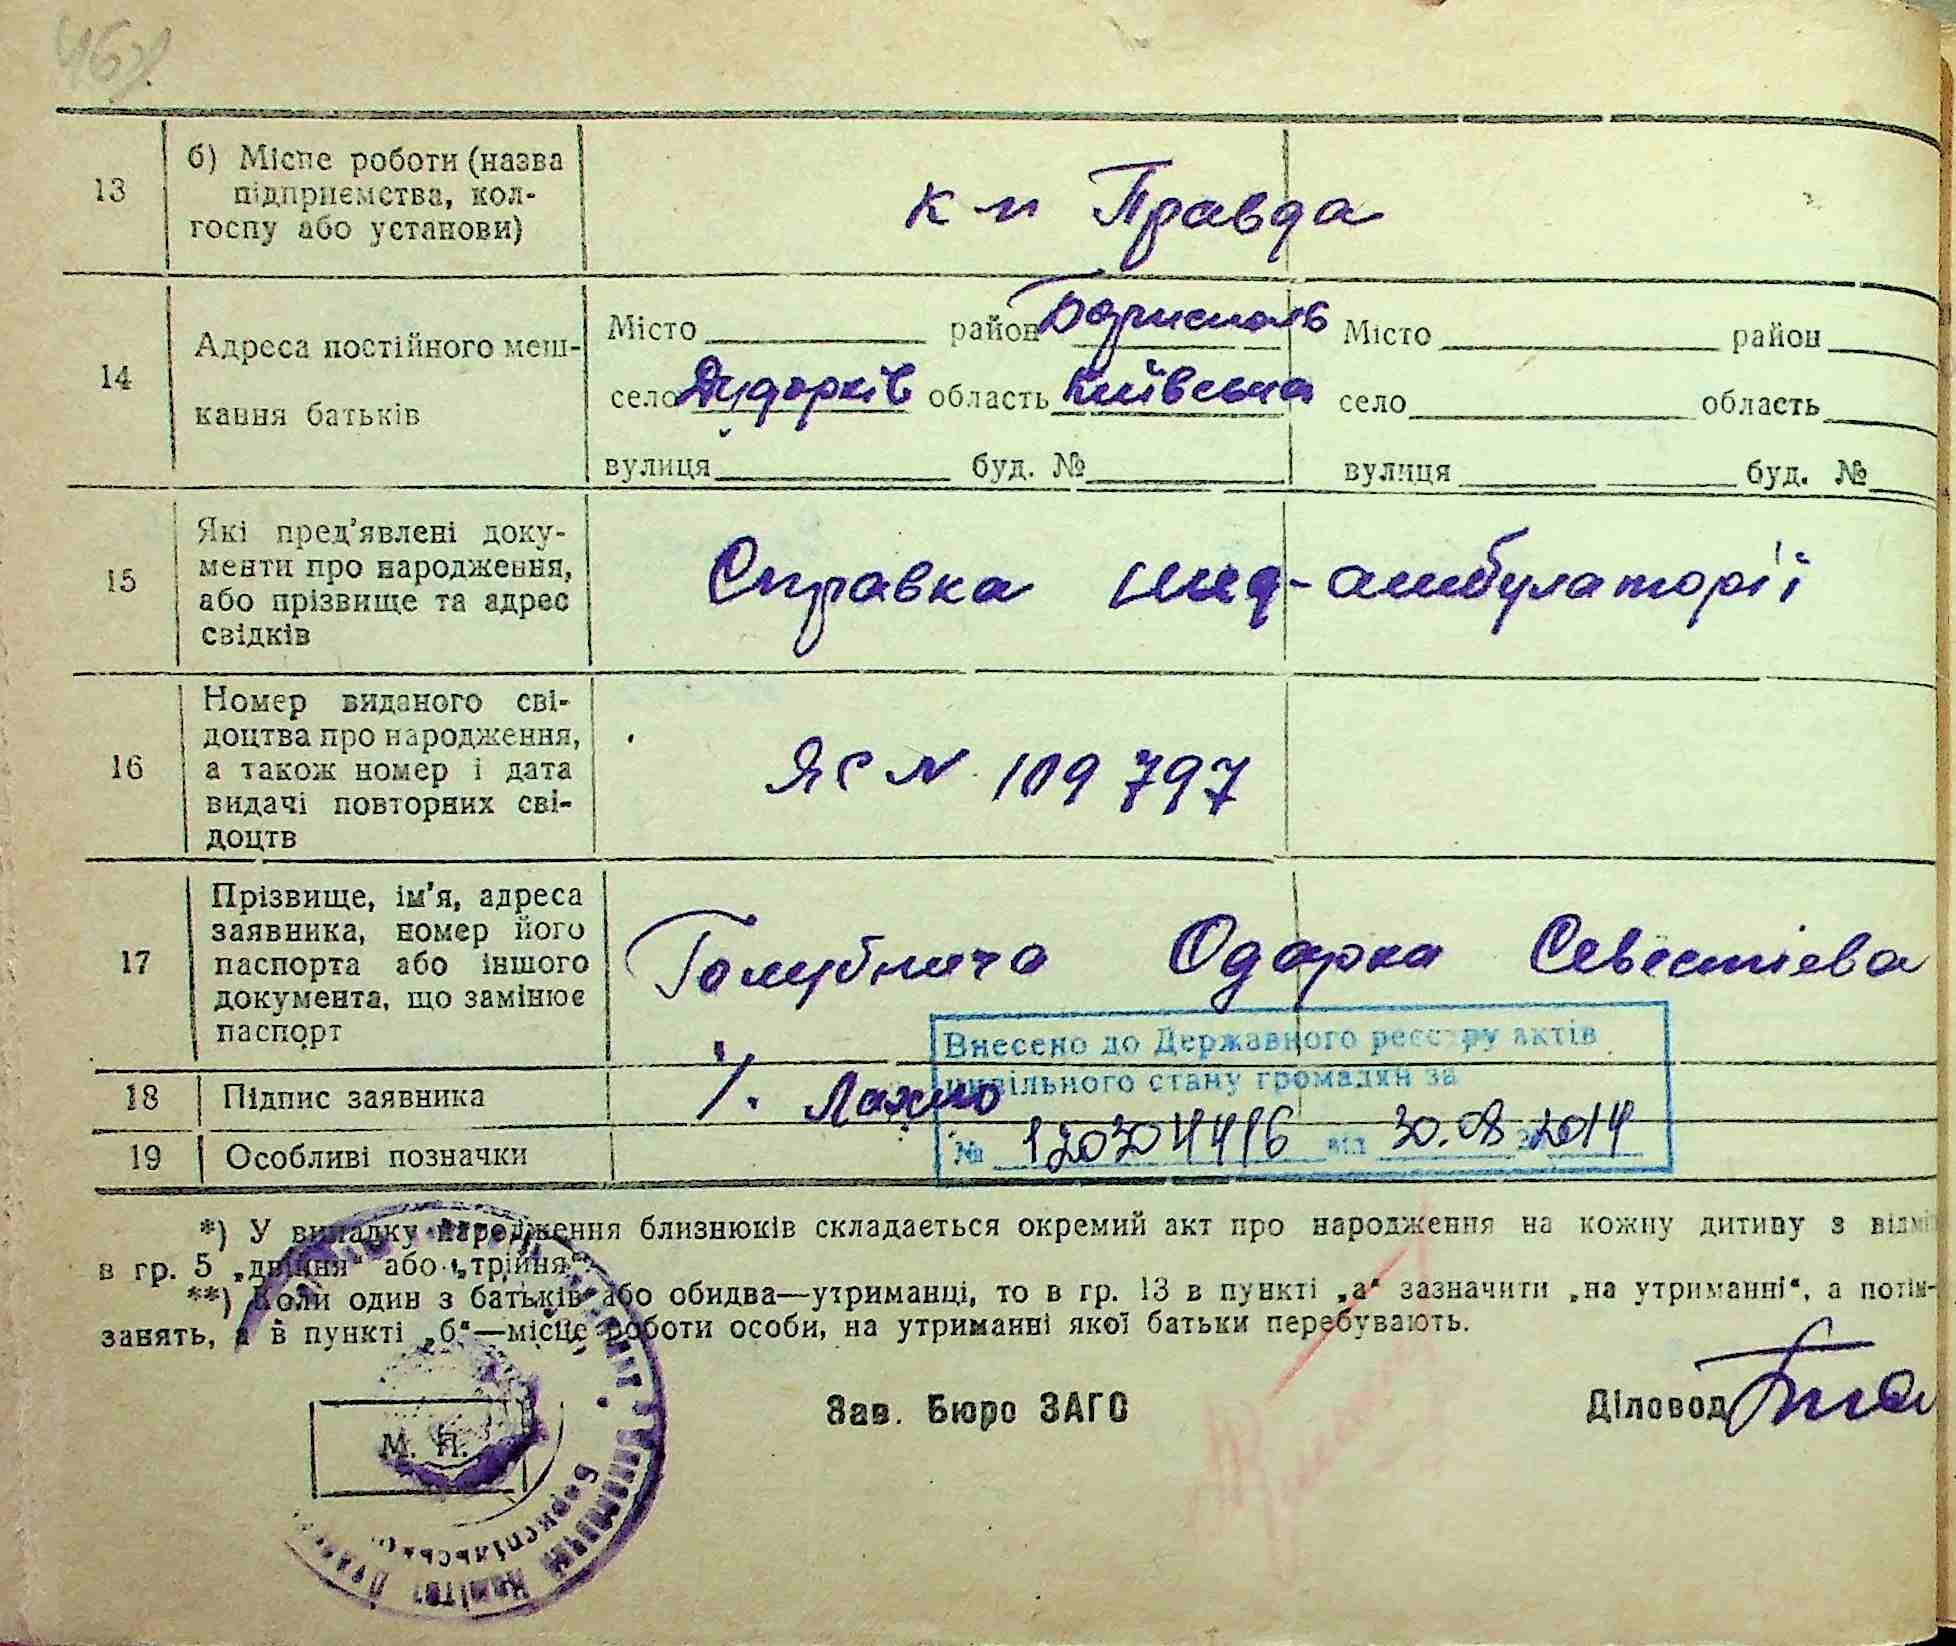 13
б) Місце роботи (назва
підприємства, кол-
госпу або установи)
к-п Правда
14
Адреса постійного меш-
кання батьків
Місто район Борисполь Місто район
село Дударків область Київська село область
вулиця буд. № вулиця буд. №
15
Які пред'явлені доку-
менти про народження,
або прізвище та адрес
свідків
Справка мед-амбулаторії
16
Номер виданого сві-
доцтва про народження,
а також номер і дата
видачі повторних сві-
доцтв
ЯС N 109797
17
Прізвище, ім'я, адреса
заявника, номер його
паспорта або іншого
документа, що замінює
паспорт
Голубнича Одарка Севестієва
Внесено до Державного реєстру актів
цивільного стану громадян за
№ від 30.08 2014
18 Підпис заявника
19 Особливі позначки
*) У випадку народження близнюків складається окремий акт про народження на кожну дитину з
в гр. 5 „двійня“ або „трійня“.
**) Коли один з батьків або обидва—утриманці, то в гр. 13 в пункті „а“ зазначити „на утриманні“, а потім-
занять, а в пункті „б“—місце роботи особи, на утриманні якої батьки перебувають.
М. П.
Зав. Бюро ЗАГС Діловод